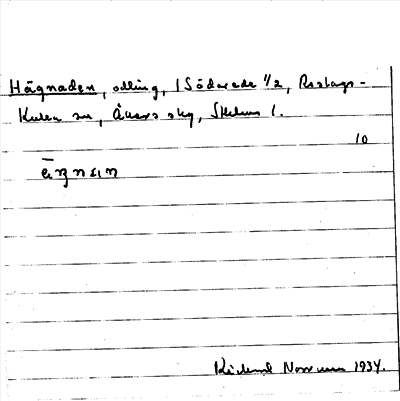 Hägnaden, odling, 1 Söderede 1/2, Roslags-
Kulla sn, Åkers skg, Sthlms l.
10
Richard Norman 1934.